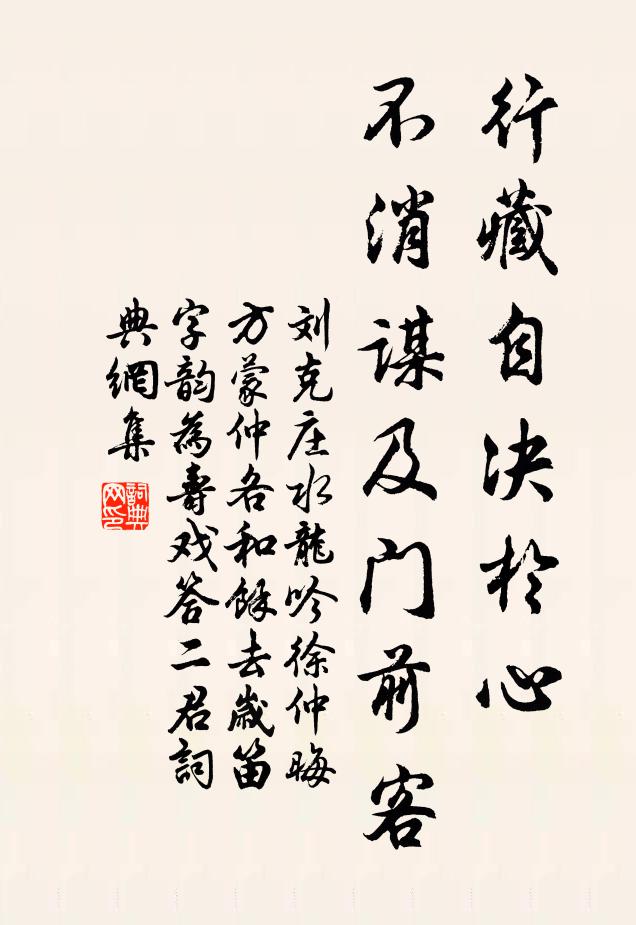 行藏自决於心
不消谋及门前客
刘克庄水龍吟徐仲晦
方蒙仲各和餘去歲笛
字韵為壽戏答二君詞
典網集
詞典网印